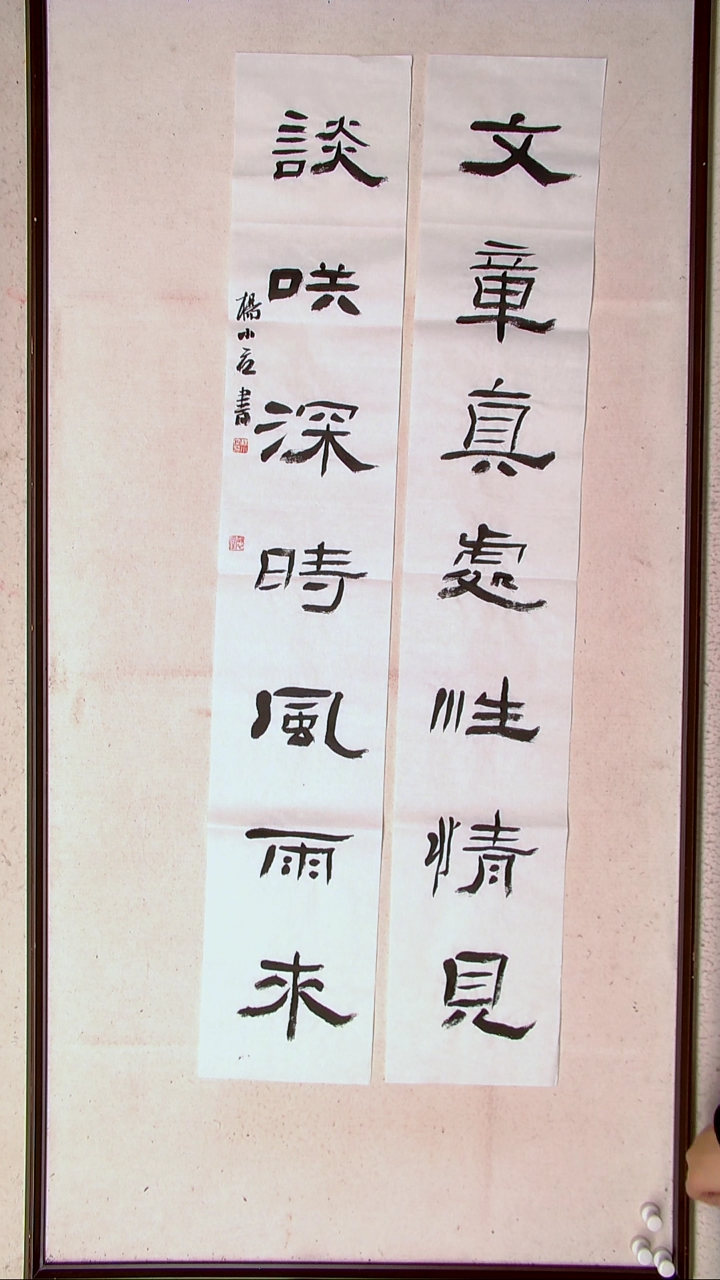 文章真處性情見
談咲深時風雨來
楊小書